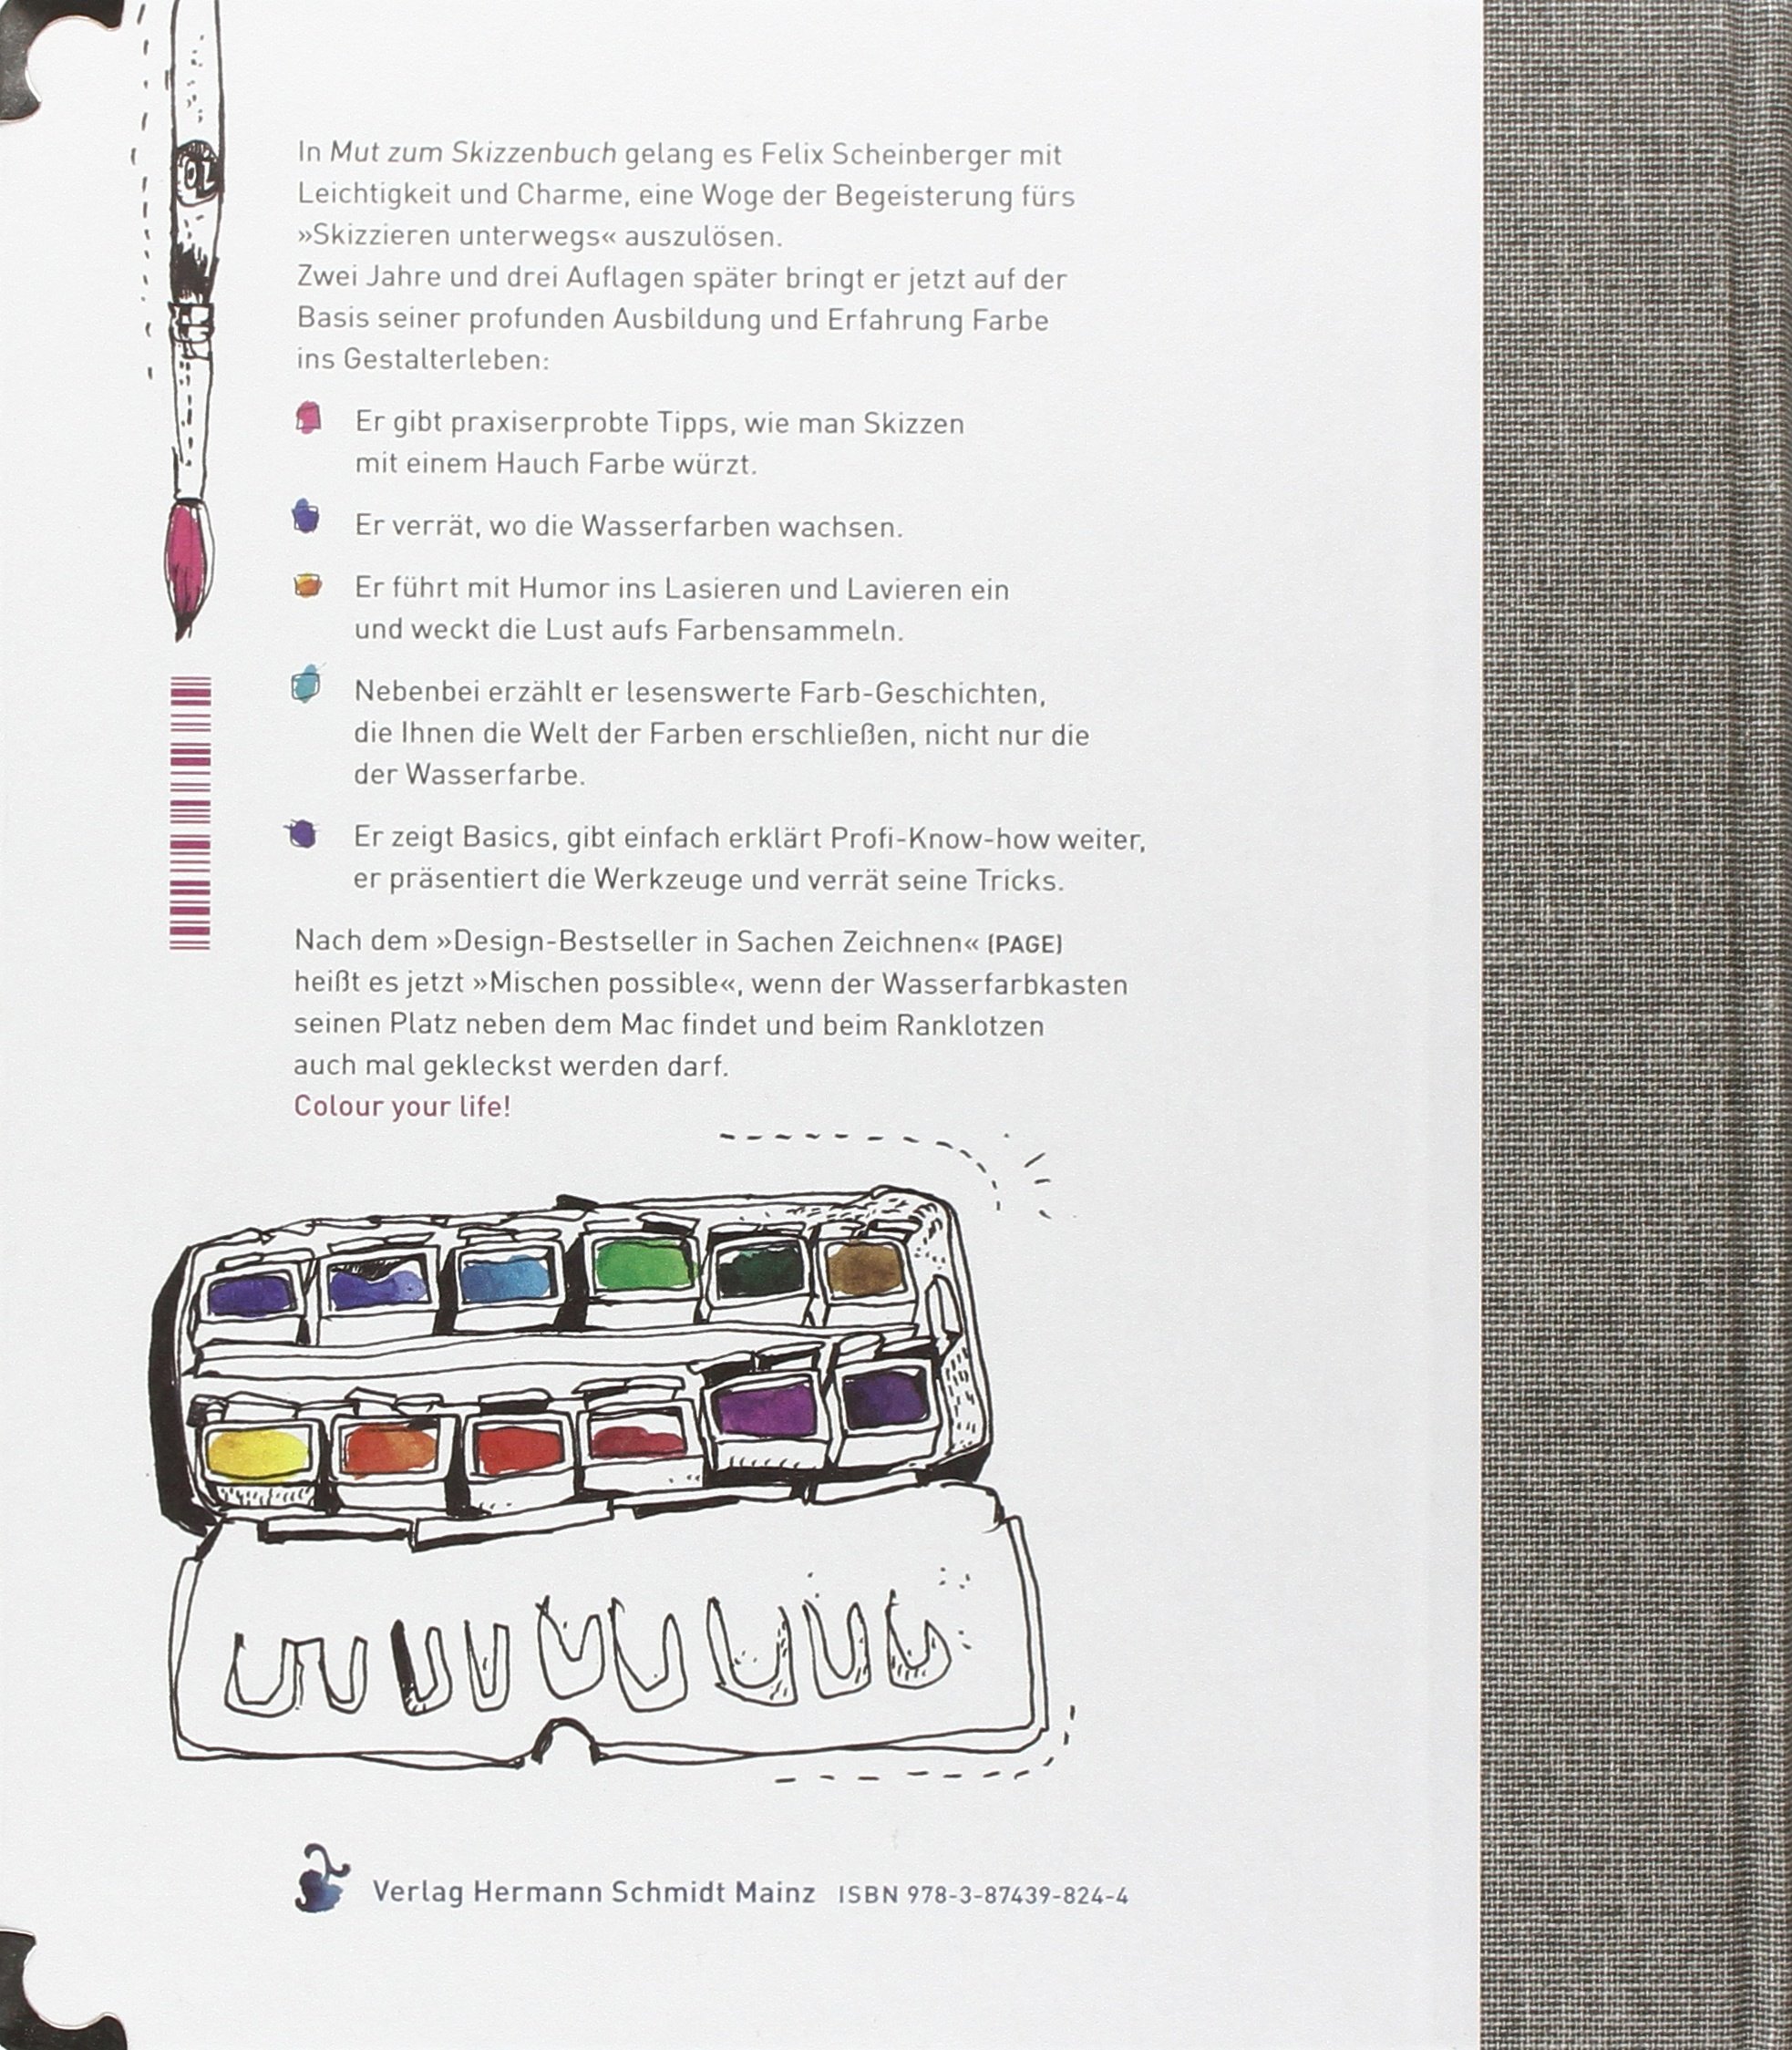 10
In Mut zum Skizzenbuch gelang es Felix Scheinberger mit
Leichtigkeit und Charme, eine Woge der Begeisterung fürs
»Skizzieren unterwegs« auszulösen.
Zwei Jahre und drei Auflagen später bringt er jetzt auf der
Basis seiner profunden Ausbildung und Erfahrung Farbe
ins Gestalterleben:
Er gibt praxiserprobte Tipps, wie man Skizzen
mit einem Hauch Farbe würzt.
Er verrät, wo die Wasserfarben wachsen.
Er führt mit Humor ins Lasieren und Lavieren ein
und weckt die Lust aufs Farbensammeln.
Nebenbei erzählt er lesenswerte Farb-Geschichten,
die Ihnen die Welt der Farben erschließen, nicht nur die
der Wasserfarbe.
Er zeigt Basics, gibt einfach erklärt Profi-Know-how weiter,
er präsentiert die Werkzeuge und verrät seine Tricks.
Nach dem »Design-Bestseller in Sachen Zeichnen« (PAGE)
heißt es jetzt »Mischen possible«, wenn der Wasserfarbkasten
seinen Platz neben dem Mac findet und beim Ranklotzen
auch mal gekleckst werden darf.
Colour your life!
Verlag Hermann Schmidt Mainz ISBN 978-3-87439-824-4